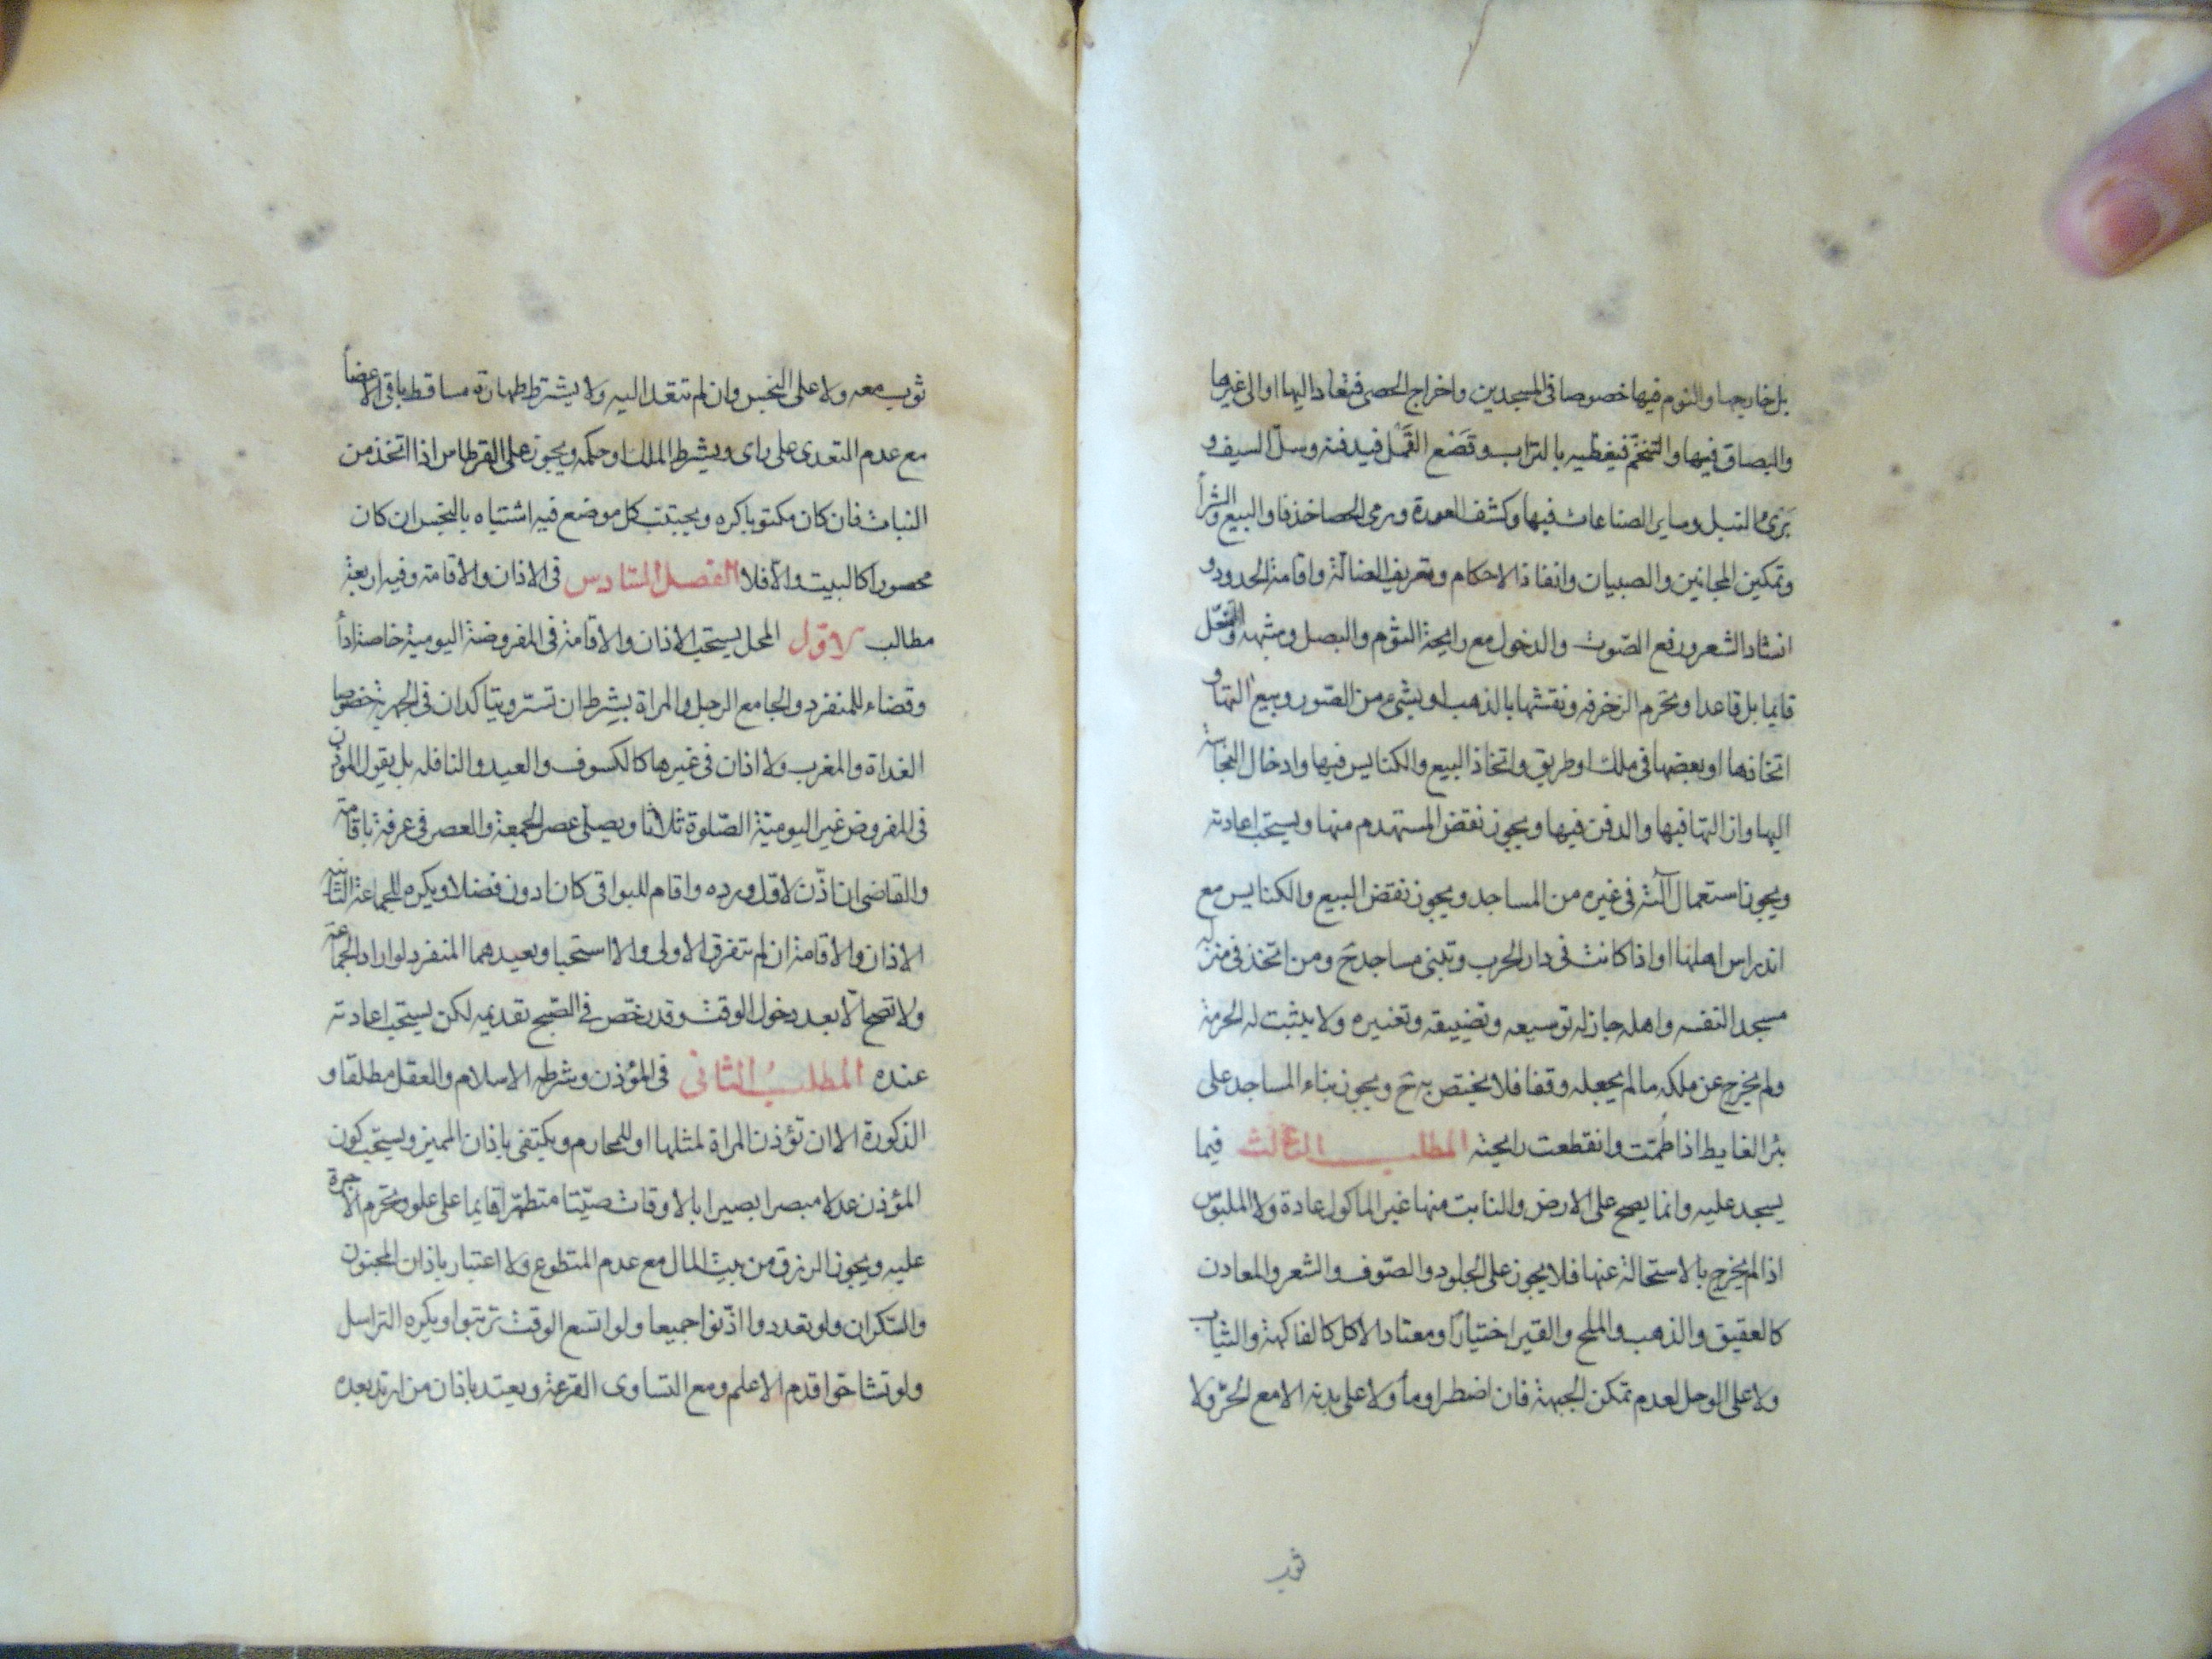 بل خارجها والنوم فيها خصوصا في المسجدين واخراج الحصى فتعاد اليها او الى غيرها
والبصاق فيها والتنخم فيغطيه بالتراب وقصع القمل فيدفنه وسل السيف و
بري النبل وساير الصناعات فيها وكشف العورة ورمي الحصا خذفا والبيع والشرا
وتمكين المجانين والصبيان وانفاذ الاحكام وتعريف الضالة واقامة الحدود و
انشاد الشعر ورفع الصوت والدخول مع رايحة الثوم والبصل وشبهه والتنعل
قايما بل قاعدا ويحرم الزخرفه ونقشها بالذهب او بشيء من الصور وبيع التها و
اتخاذها او بعضها في ملك او طريق واتخاذ البيع والكنايس فيها وادخال النجاسة
اليها وازالتها فيها والدفن فيها ويجوز نقض المستهدم منها ويستحب اعادته
ويجوز استعمال آلته في غيره من المساجد ويجوز نقض البيع والكنايس مع
اندراس اهلها او اذا كانت في دار الحرب وتبنى مساجد ح ومن اتخذ في منزله
مسجدا لنفسه واهله جاز له توسيعه وتضييقه وتغييره ولا يثبت له الحرمة
ولم يخرج عن ملكه ما لم يجعله وقفا فلا يختص به ح ويجوز بناء المساجد على
بئر الغايط اذا طمت وانقطعت رايحته المطلب الثالث فيما
يسجد عليه وانما يصح على الارض والنابت منها غير الماكول عادة ولا الملبوس
اذا لم يخرج بالاستحالة عنها فلا يجوز على الجلود والصوف والشعر والمعادن
كالعقيق والذهب والملح والقير اختيارا ومعتاد الاكل كالفاكهة والثياب
ولا على الوحل لعدم تمكن الجبهة فان اضطر اومأ ولا على يديه الا مع الحر ولا
ثوب
ثوب معه ولا على النجس وان لم تتعد اليه ولا يشترط طهارة مساقط باقي الاعضا
مع عدم التعدي على راى ويشترط الملك او حكمه ويجوز على القرطاس اذا اتخذ من
النبات فان كان مكتوبا كره ويجتنب كل موضع فيه اشتباه بالنجس ان كان
محصورا كالبيت والا فلا الفصل السادس في الاذان والاقامة وفيه اربعة
مطالب الاول المحل يستحب الاذان والاقامة في المفروضة اليومية خاصة اداً
وقضاء للمنفرد والجامع الرجل والمراة بشرط ان تستر ويتاكدان في الجهرية خصوصا
الغداة والمغرب ولا اذان في غيرها كالكسوف والعيد والنافله بل يقول المؤذن
في المفروض غير اليومية الصلوة ثلاثا ويصلى عصر الجمعة والعصر في عرفة باقامة
والقاضي ان اذن لاول ورده واقام للبواقي كان ادون فضلا ويكره للجماعة الثانية
الاذان والاقامة ان لم تتفرق الاولى والا استحبا ويعيدهما المنفرد لو اراد الجماعة
ولا تصح الا بعد دخول الوقت وقد رخص في الصبح تقديمه لكن يستحب اعادته
عنده المطلب الثاني في المؤذن وشرطه الاسلام والعقل مطلقا و
الذكورة الا ان تؤذن المراة لمثلها او للمحارم ويكتفى باذان المميز ويستحب كون
المؤذن عدلا مبصرا بصيرا بالاوقات صيتا متطهرا قايما على علو ويحرم الاجرة
عليه ويجوز الرزق من بيت المال مع عدم المتطوع ولا اعتبار باذان المجنون
والسكران ولو تعددوا اذنوا جميعا ولو اتسع الوقت ترتبوا ويكره التراسل
ولو تشاحوا قدم الاعلم ومع التساوى القرعة ويعتد باذان من ارتد بعده